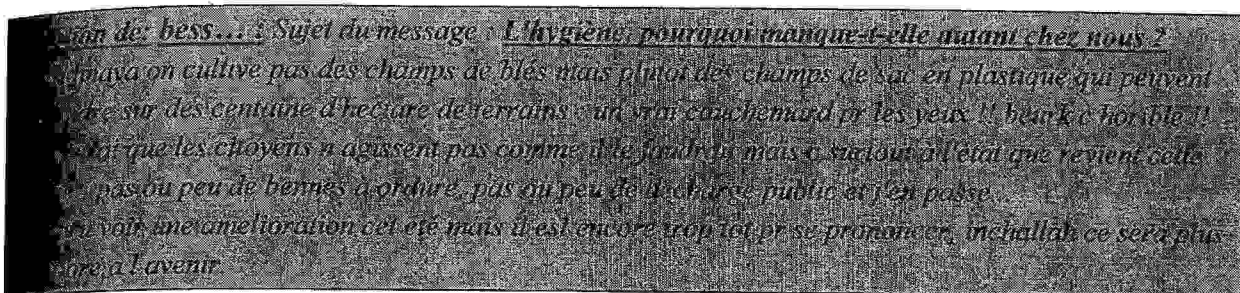 de: bess... : Sujet du message : L'hygiène, pourquoi manque-t-elle autant chez nous ?
on cultive pas des champs de blés mais plutot des champs de sac en plastique qui peuvent
sur des centaine d'hectare de terrains : un vrai cauchemard pr les yeux !! beurk c horible !!
que les citoyens n agissent pas comme il le faudrait mais c surtout à l'état que revient cette
pas ou peu de bennes a ordure, pas ou peu de décharge public et j'en passe...
voir une amelioration cet eté mais il est encore trop tot pr se prononcer, inchallah ce sera plus
a l avenir